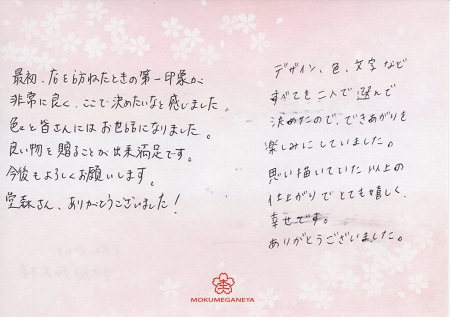 最初、店を訪ねたときの第一印象が、
非常に良く、ここで決めたいなと感じました。
色々と皆さんにはお世話になりました。
良い物を贈ることが出来満足です。
今後もよろしくお願いします。
堂森さん、ありがとうございました!
デザイン、色、文字など
すべてを二人で選んで
決めたので、できあがりを
楽しみにしていました。
思い描いていた以上の
仕上がりでとても嬉しく、
幸せです。
ありがとうございました。
MOKUMEGANEYA